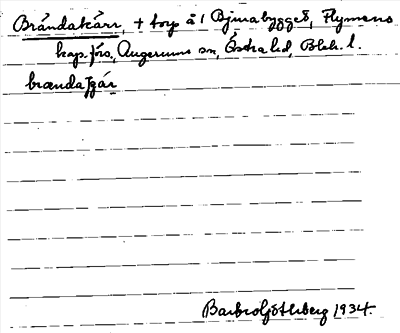 Brändakärr, + torp å 1 Bjirabygget, Flymens
kap. förs, Augerums sn, Östra hd, Blek. l.
brændaʃær
Barbro Göthberg 1934.